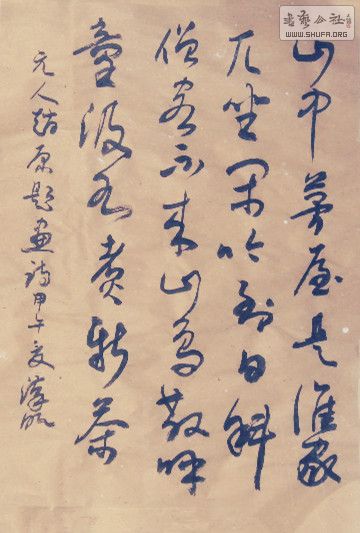 書藝公社
WWW.SHUFA.ORG
山中茅屋是誰家
兀坐閑吟到日斜
俗客不來山鳥散呼
童汲水煮新茶
元人趙原題畫詩甲午夏